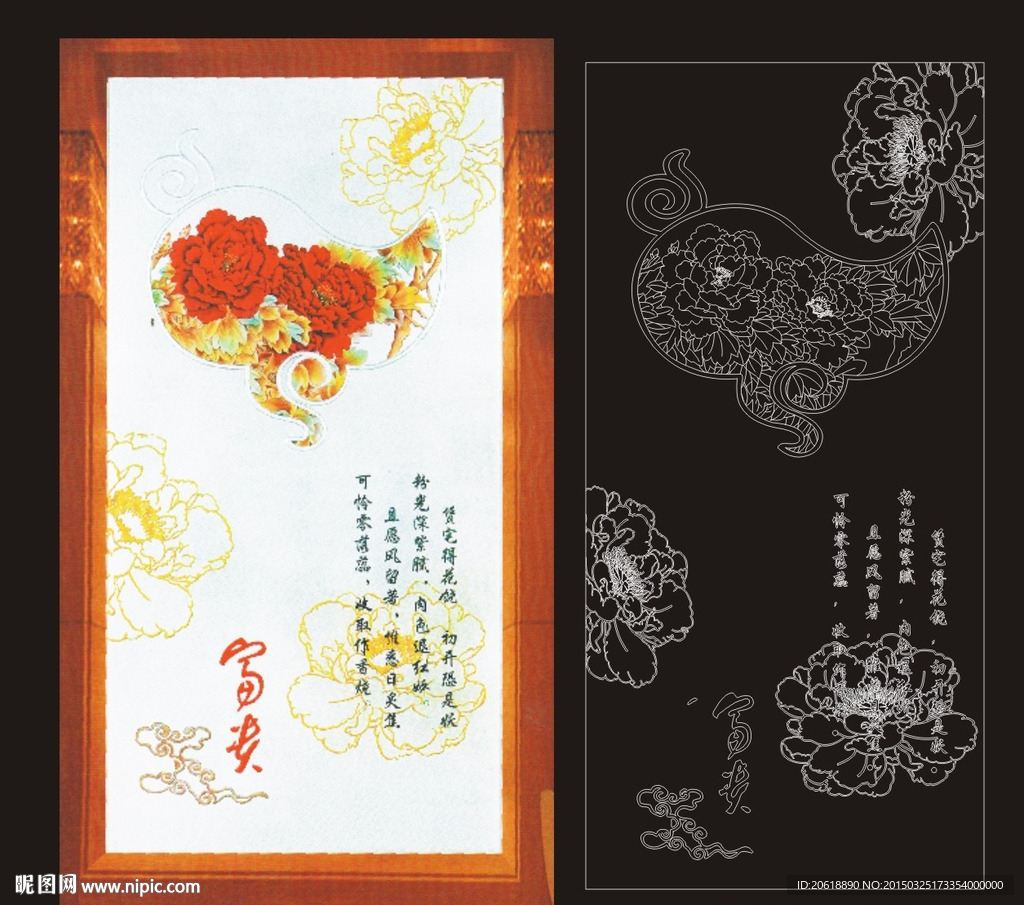 赁宅得花饶 初开恐是妖
粉光深紫腻,肉色退红娇
且愿风留著,惟愁日炙焦
可怜零落蕊,收取作香烧
富贵
赁宅得花饶,初开恐是妖
粉光深紫腻,肉色
且愿风留著,
可怜零落蕊,收取作
富贵
昵图网 www.nipic.com
ID:20618890 NO:20150325173354000000